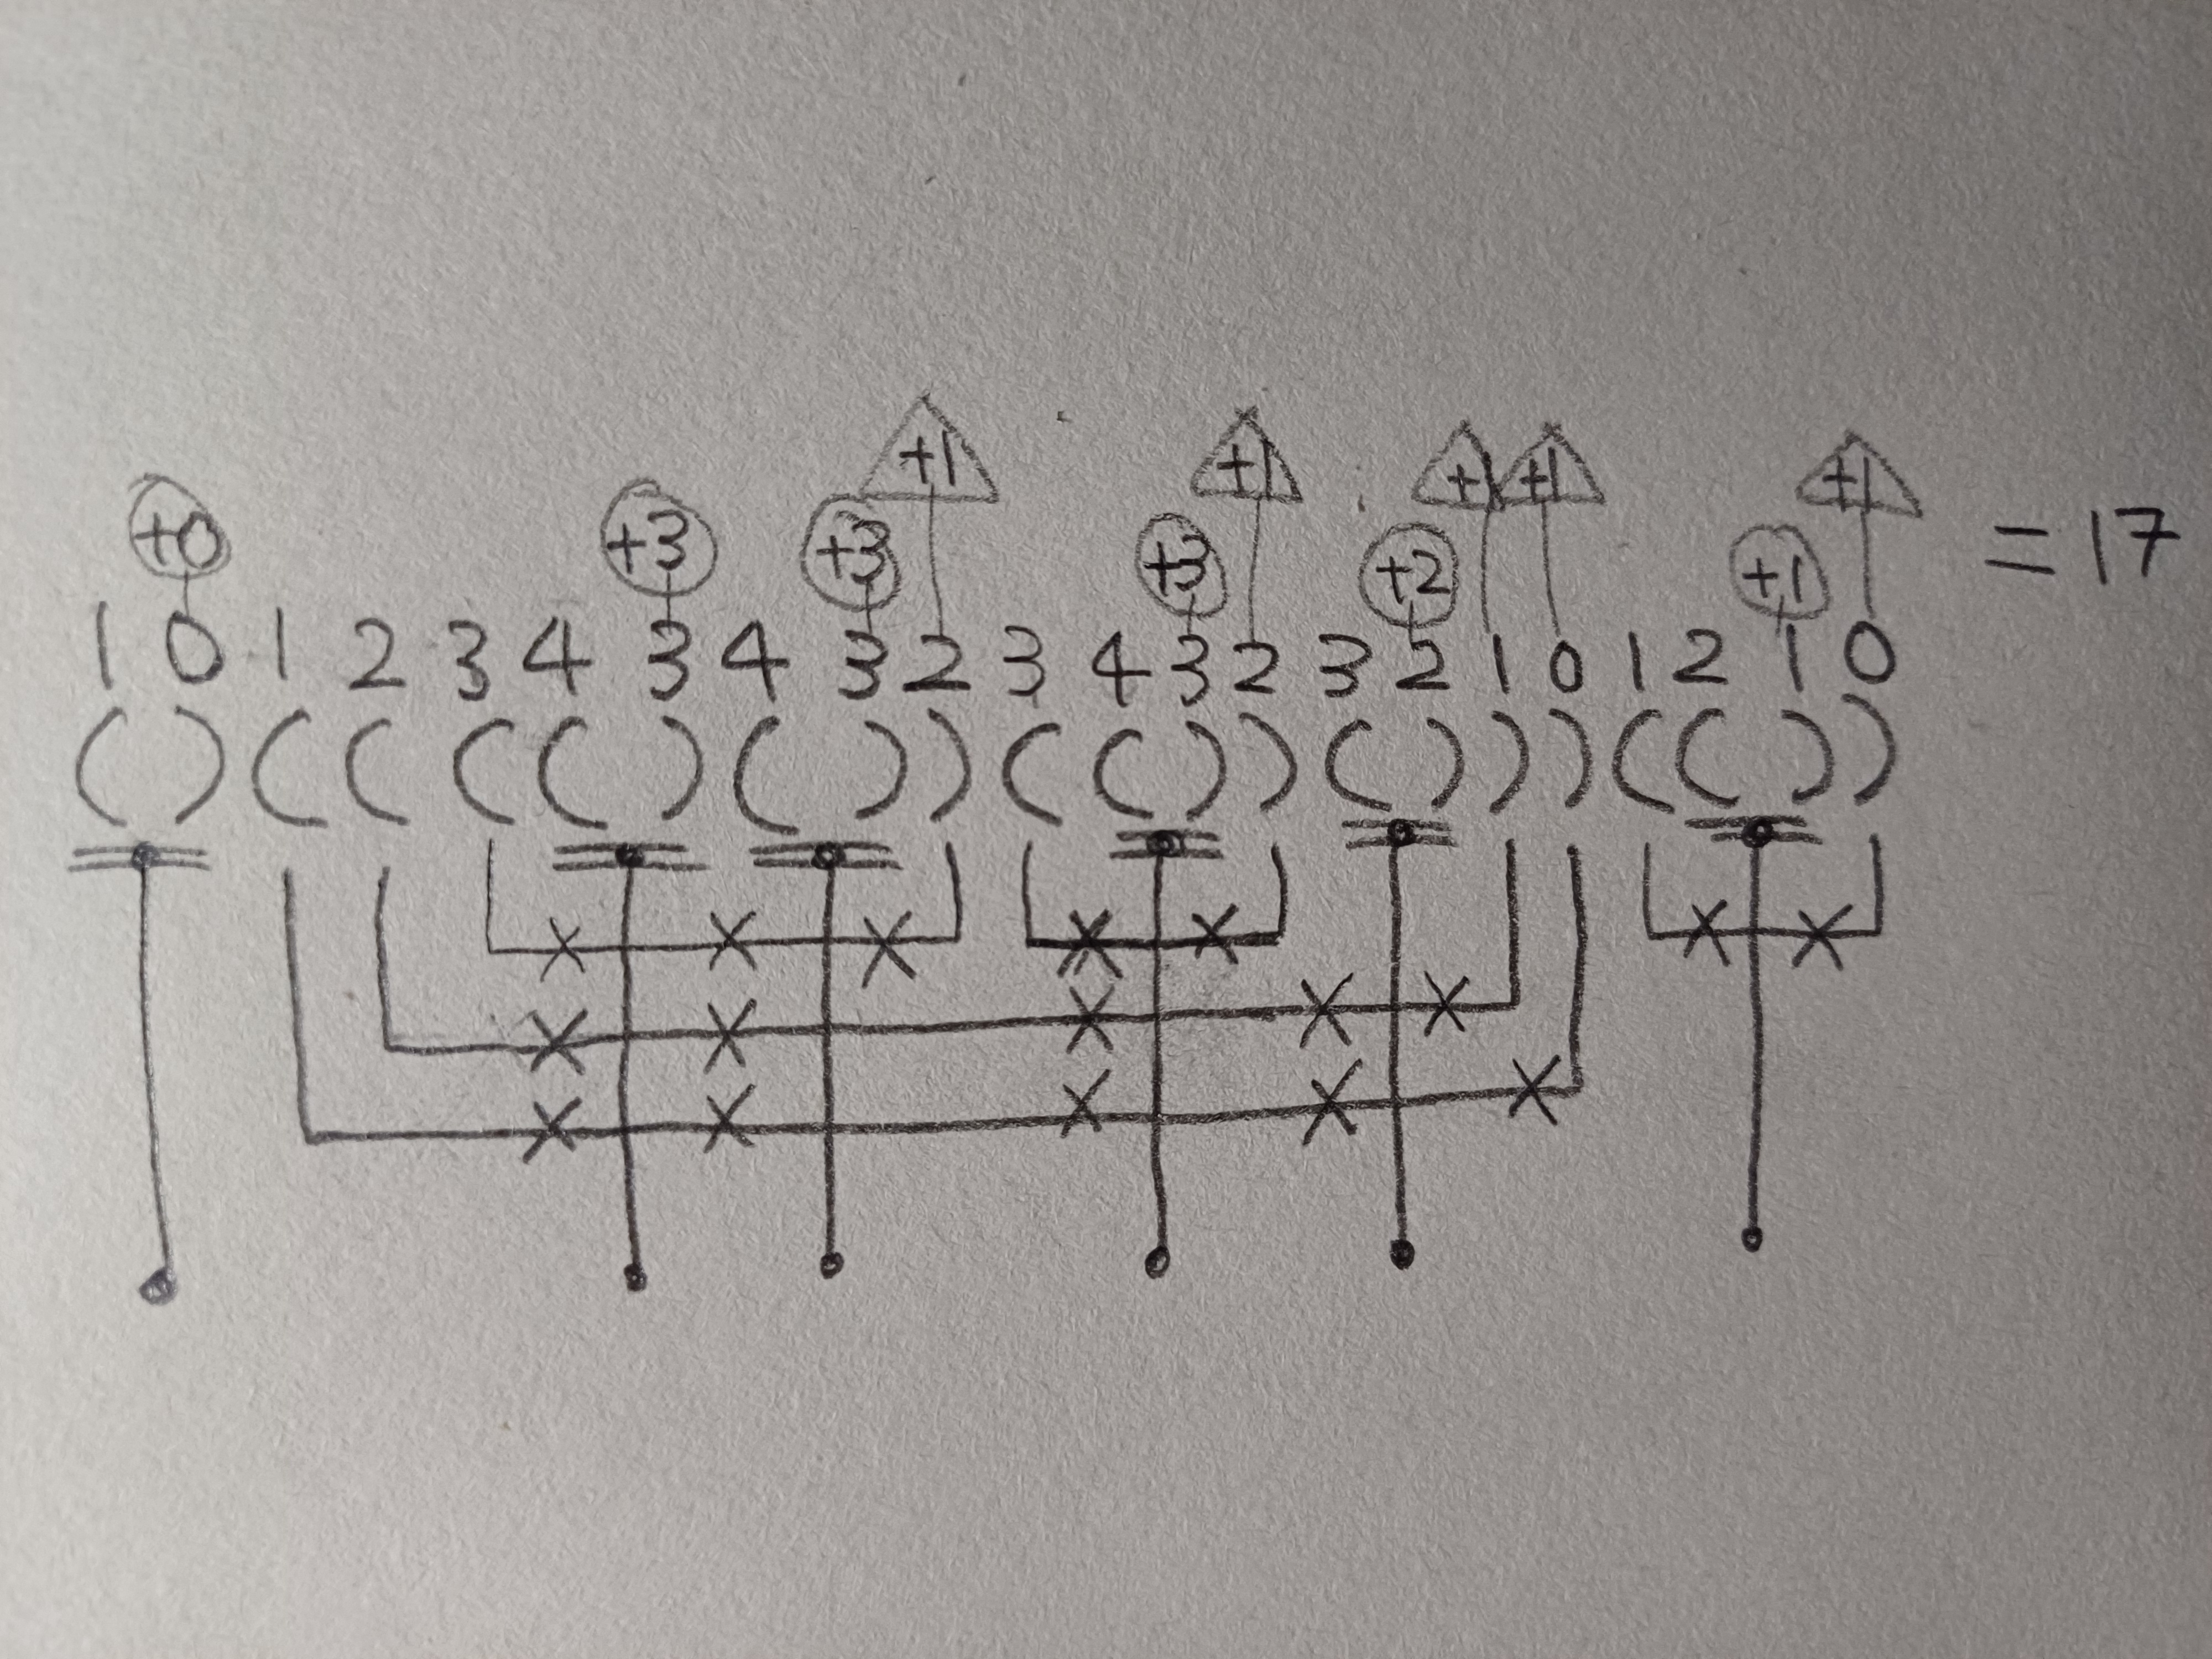 +1 +1 + +1 +1
+0 +3 +3 +3 +2 +1 = 17
1 0 1 2 3 4 3 4 3 2 3 4 3 2 3 2 1 0 1 2 1 0
( ) ( ( ( ( ) ( ) ) ( ( ) ) ( ) ) ) ( ( ) )